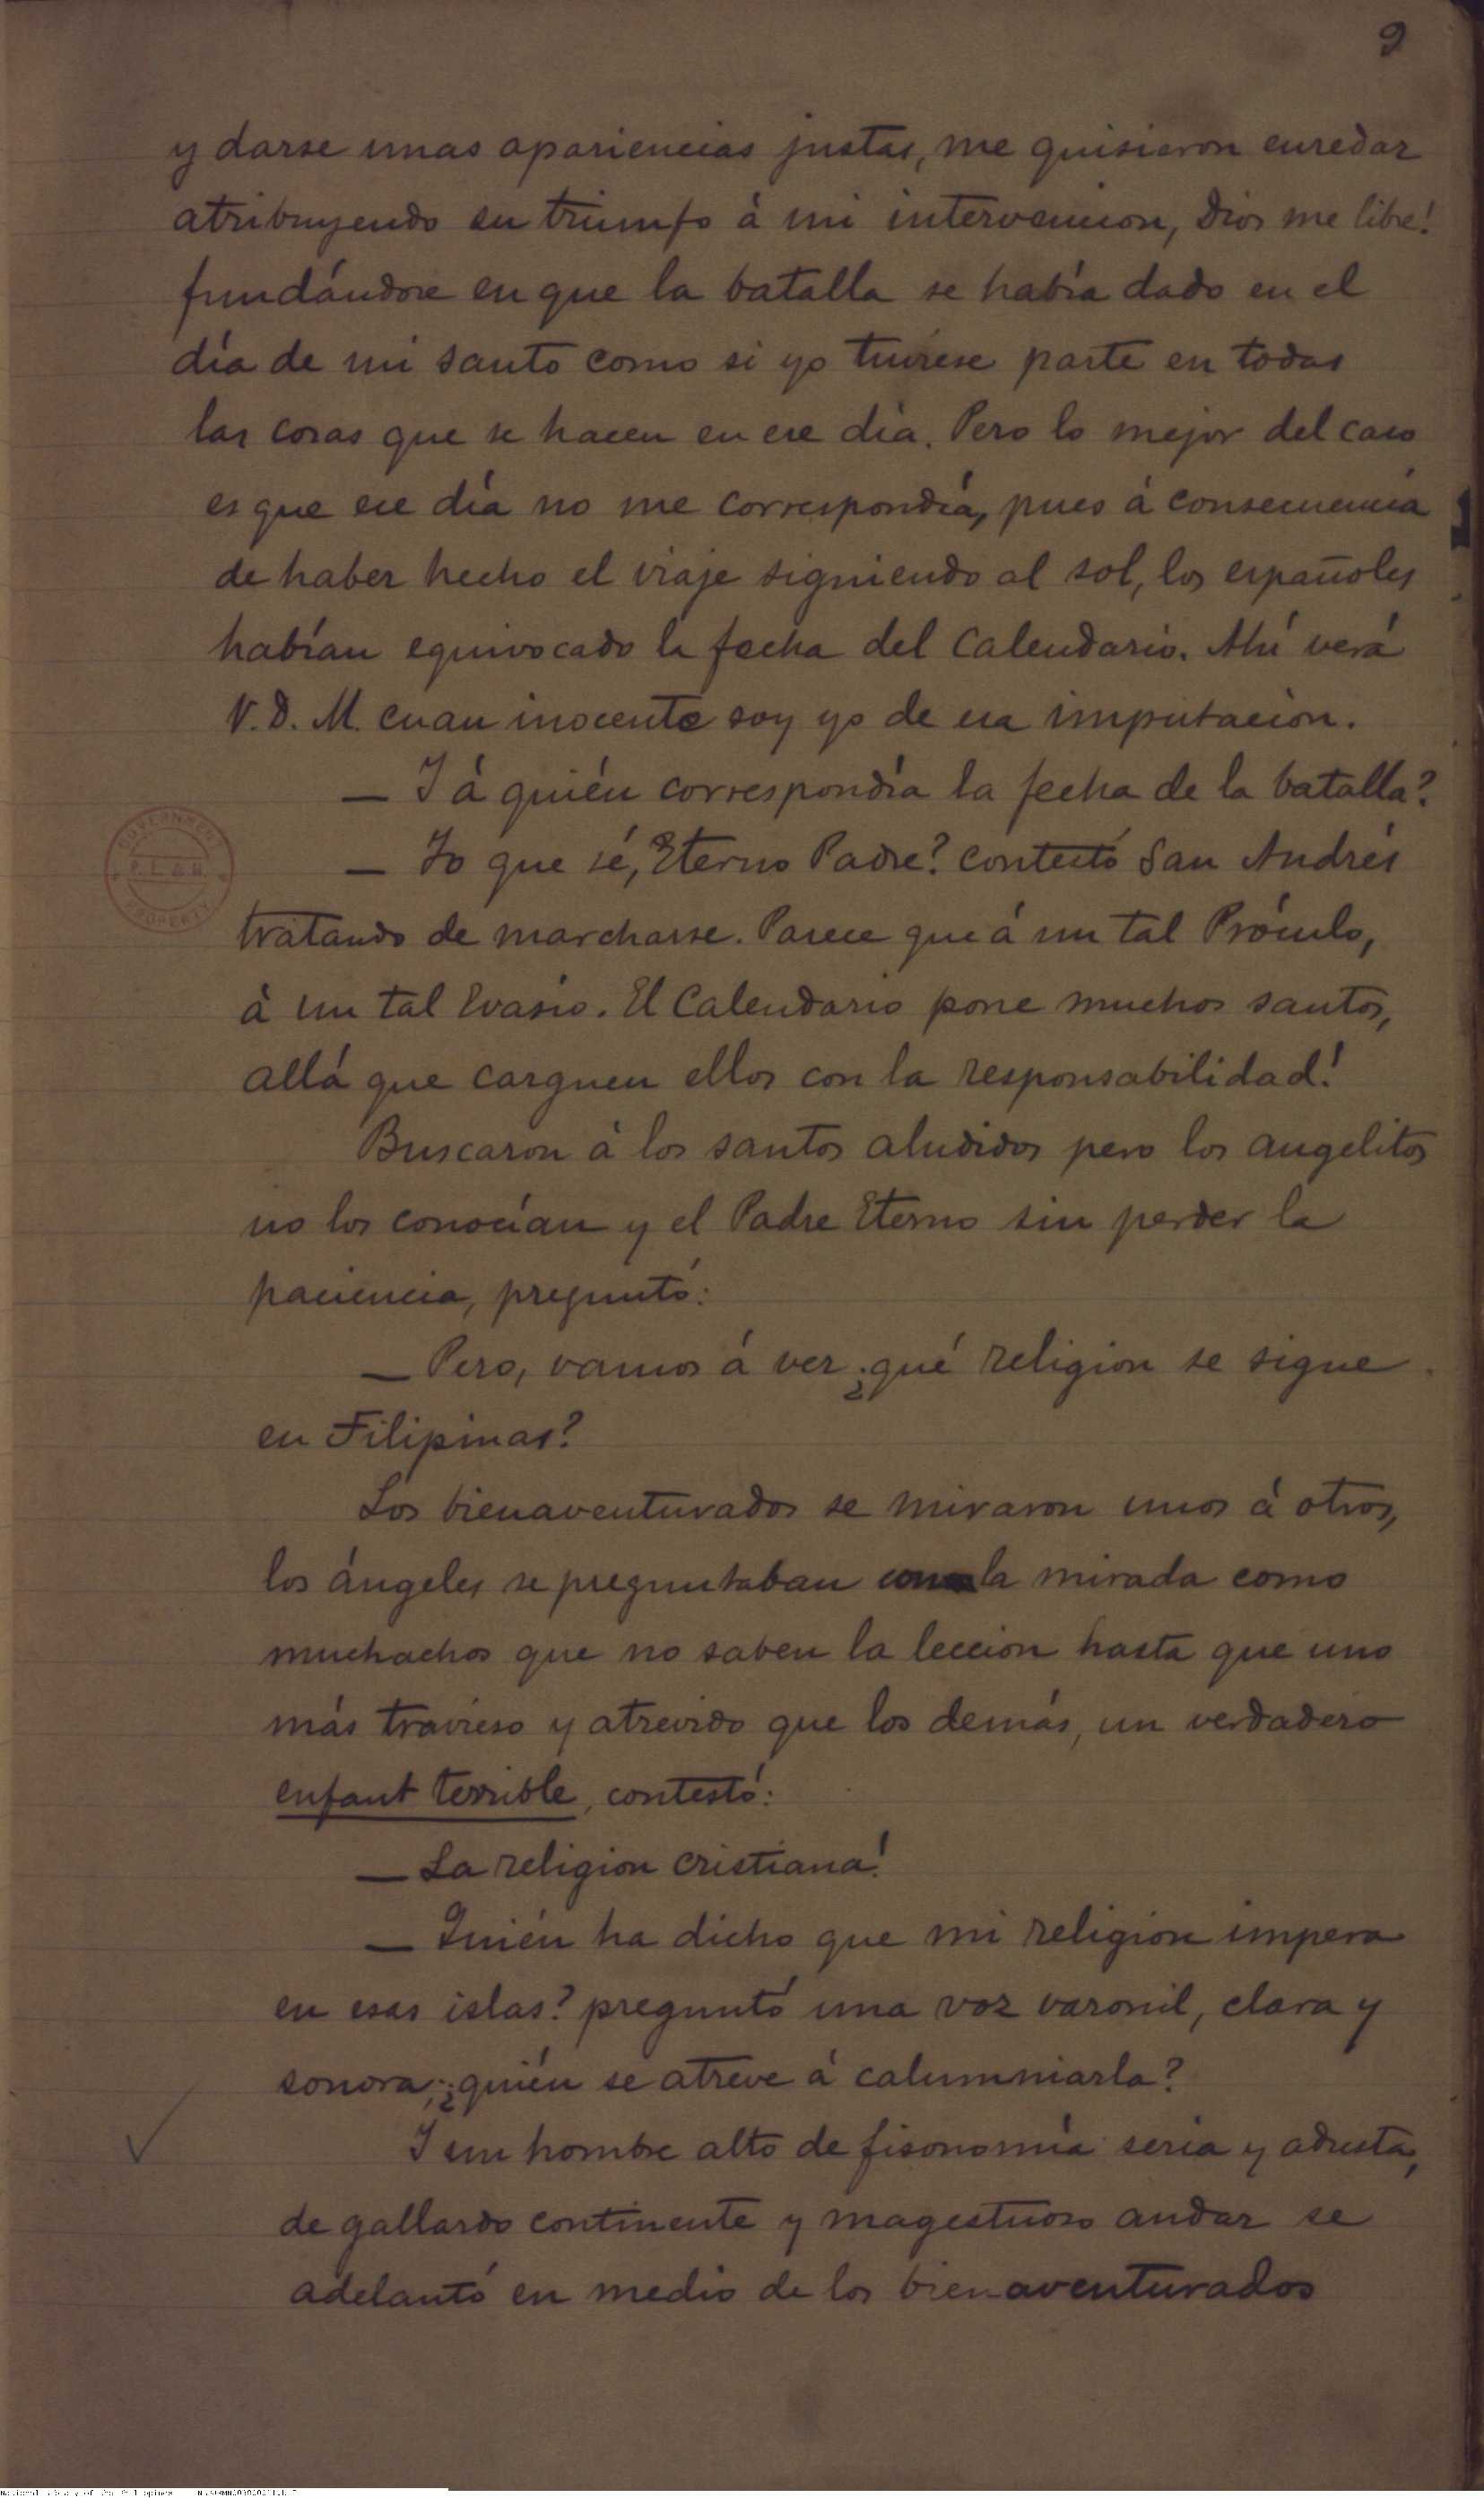 9
y darse unas apariencias justas, me quisieron enredar
atribuyendo su triunfo á mi intervencion, Dios me libre!
fundándose en que la batalla se había dado en el
día de mi santo como si yo tuviese parte en todas
las cosas que se hacen en ese día. Pero lo mejor del caso
es que ese día no me correspondía, pues á consecuencia
de haber hecho el viaje siguiendo al sol, los españoles
habían equivocado la fecha del Calendario. Ahí verá
V. D. M. cuan inocente soy yo de esa imputacion.
— Y á quién correspondía la fecha de la batalla?
— Yo que sé, Eterno Padre? contestó San Andrés
tratando de marcharse. Parece que á un tal Próculo,
á un tal Evasio. El Calendario pone muchos santos,
allá que carguen ellos con la responsabilidad!
Buscaron á los santos aludidos pero los angelitos
no los conocían y el Padre Eterno sin perder la
paciencia, preguntó:
— Pero, vamos á ver ¿qué religion se sigue
en Filipinas?
Los bienaventurados se miraron unos á otros,
los ángeles se preguntaban con la mirada como
muchachos que no saben la leccion hasta que uno
más travieso y atrevido que los demás, un verdadero
enfant terrible, contestó:
— La religion cristiana!
— Quién ha dicho que mi religion impera
en esas islas? preguntó una voz varonil, clara y
sonora; ¿quién se atreve á calumniarla?
Y un hombre alto de fisonomía seria y adusta,
de gallardo continente y magestuoso andar se
adelantó en medio de los bienaventurados
GOVERNMENT
P. L. & M.
PROPERTY
National Library of the Philippines